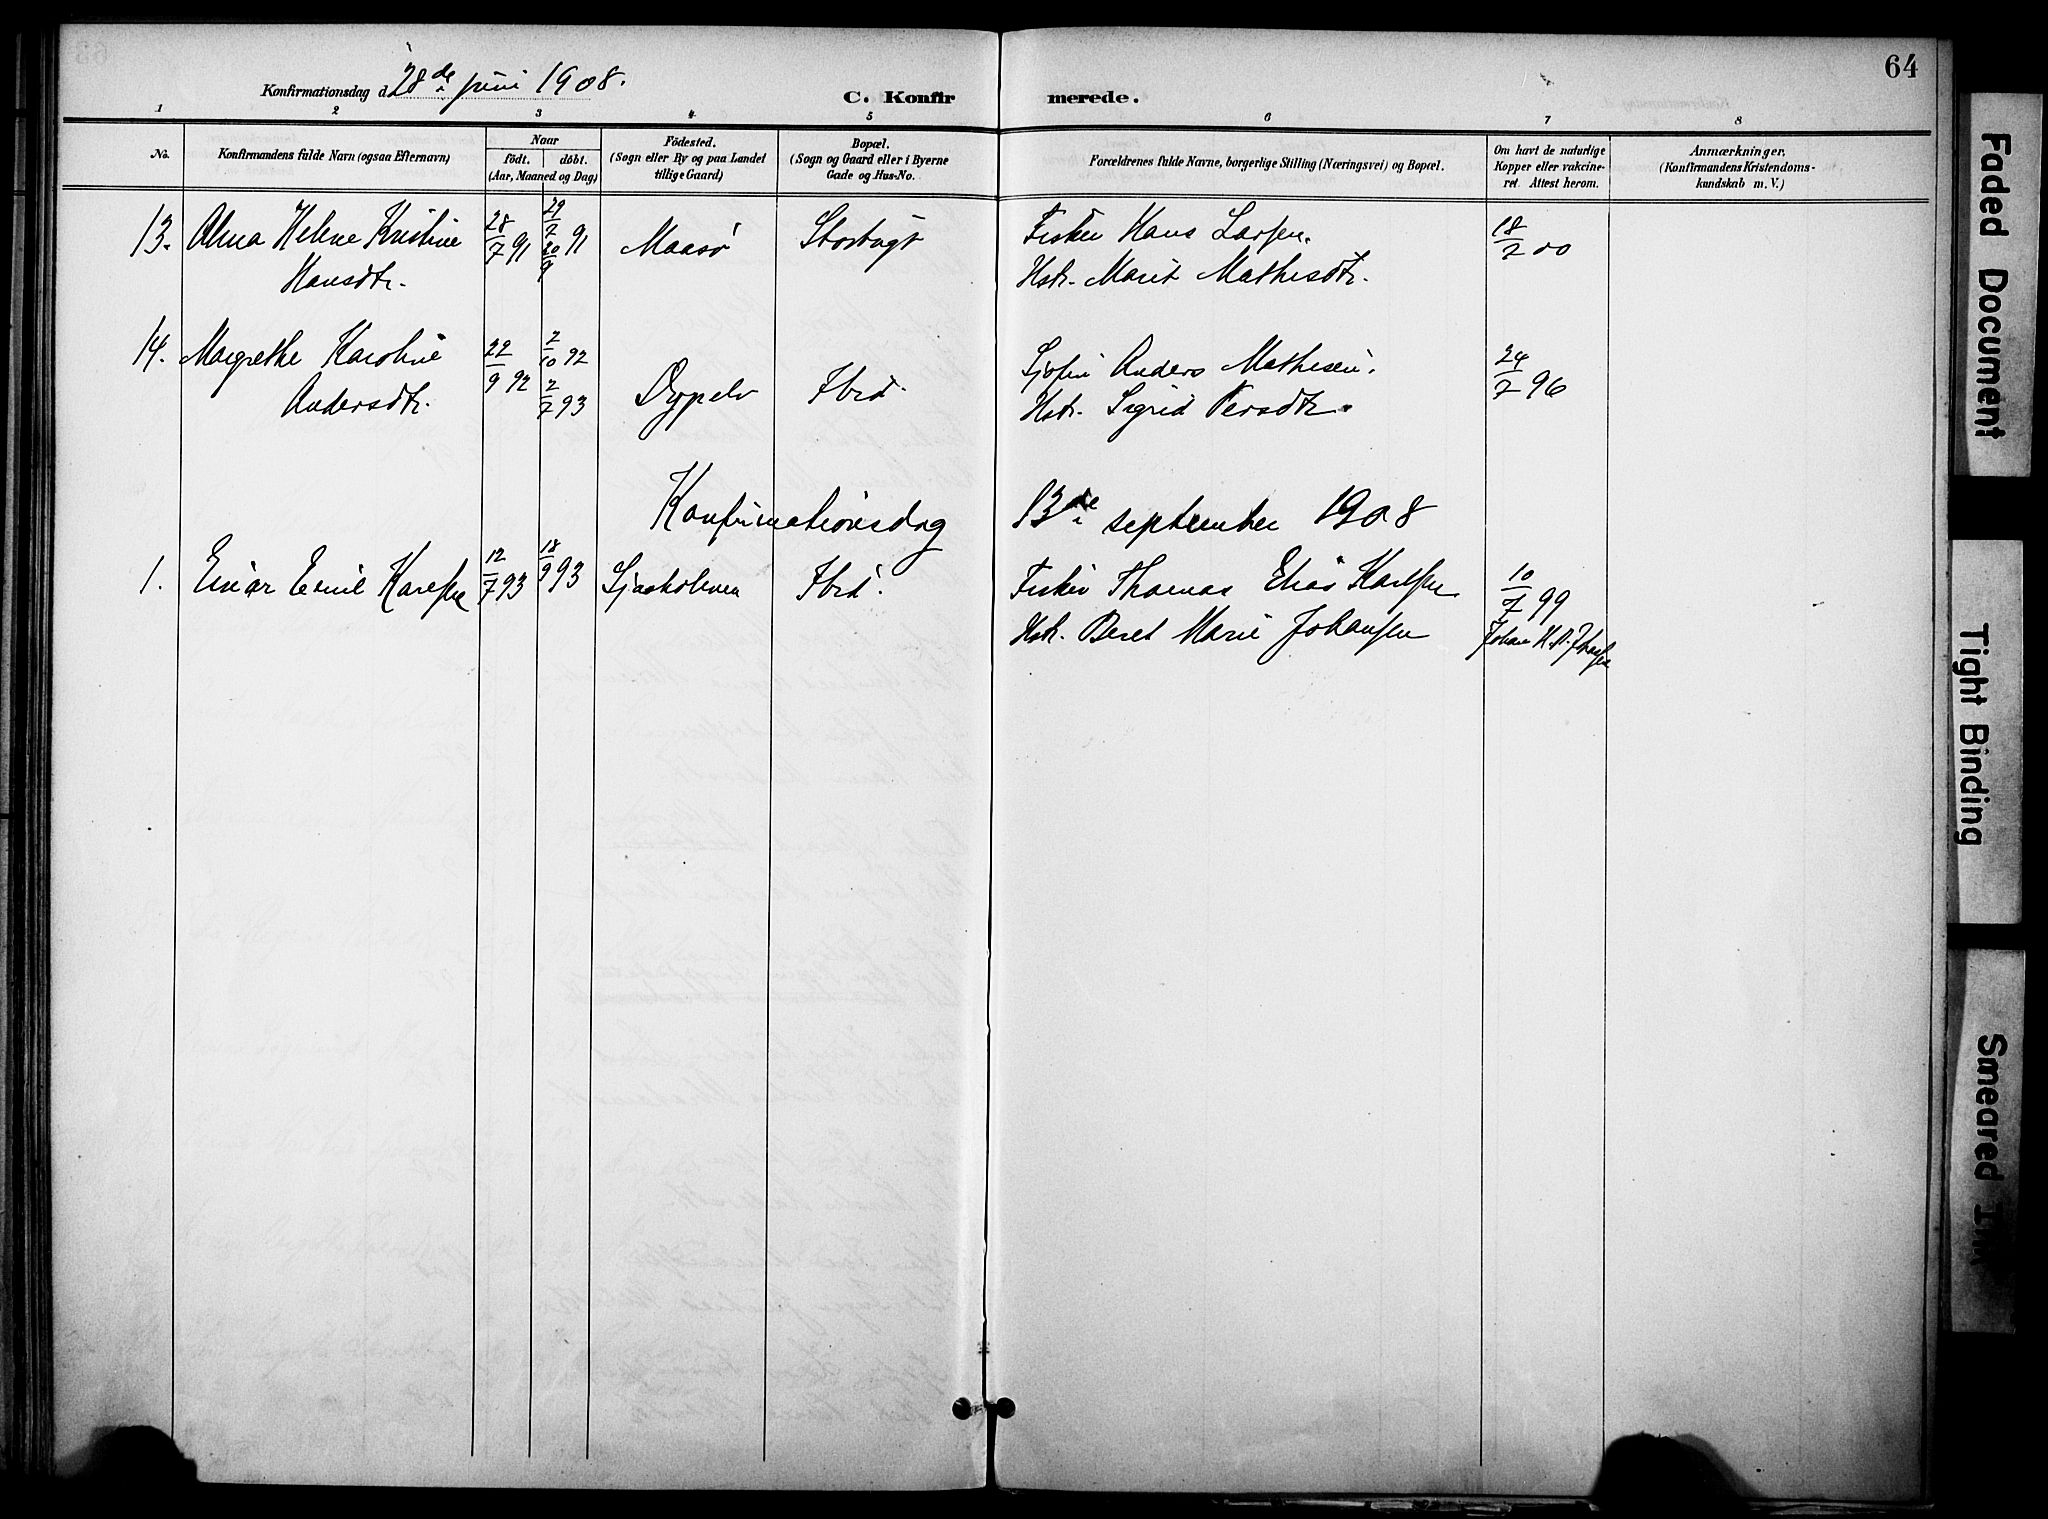 64
Konfirmationsdag d. 28de juni 1908.
C. Konfirmerede.
1 2 3 4 5 6 7 8
No.
Konfirmandens fulde Navn (ogsaa Efternavn)
Naar
födt. döbt.
(Aar, Maaned og Dag)
Födested.
(Sogn eller By og paa Landet
tillige Gaard)
Bopæl.
(Sogn og Gaard eller i Byerne
Gade og Hus-No.
Forældrenes fulde Navne, borgerlige Stilling (Næringsvei) og Bopæl.
Om havt de naturlige
Kopper eller vakcine-
ret. Attest herom.
Anmærkninger,
(Konfirmandens Kristendoms-
kundskab m. V.)
13. Alma Helene Kristine 28/7 91 29/7 91 Maasö Storbugt Fisker Hans Larsen. 18/7 00
Hansdtr. 20/9 Hstr. Marit Mathisdtr.
14. Margrethe Karoline 22/9 92 2/10 92 Sjöfin Anders Mathesen. 24/7 96
Andersdtr. 2/7 93 Ibid. Hstr. Sigrid Persdtr.
Konfirmationsdag 13de september 1908
1. Einar Emil Karlsen 12/7 93 18/9 93 Sjaaholmen Ibid. Fisker Thomas Elias Karlsen 10/7 99
Hstr. Beret Marie Johansen Johan
Faded Document
Tight Binding
Smeared Ink